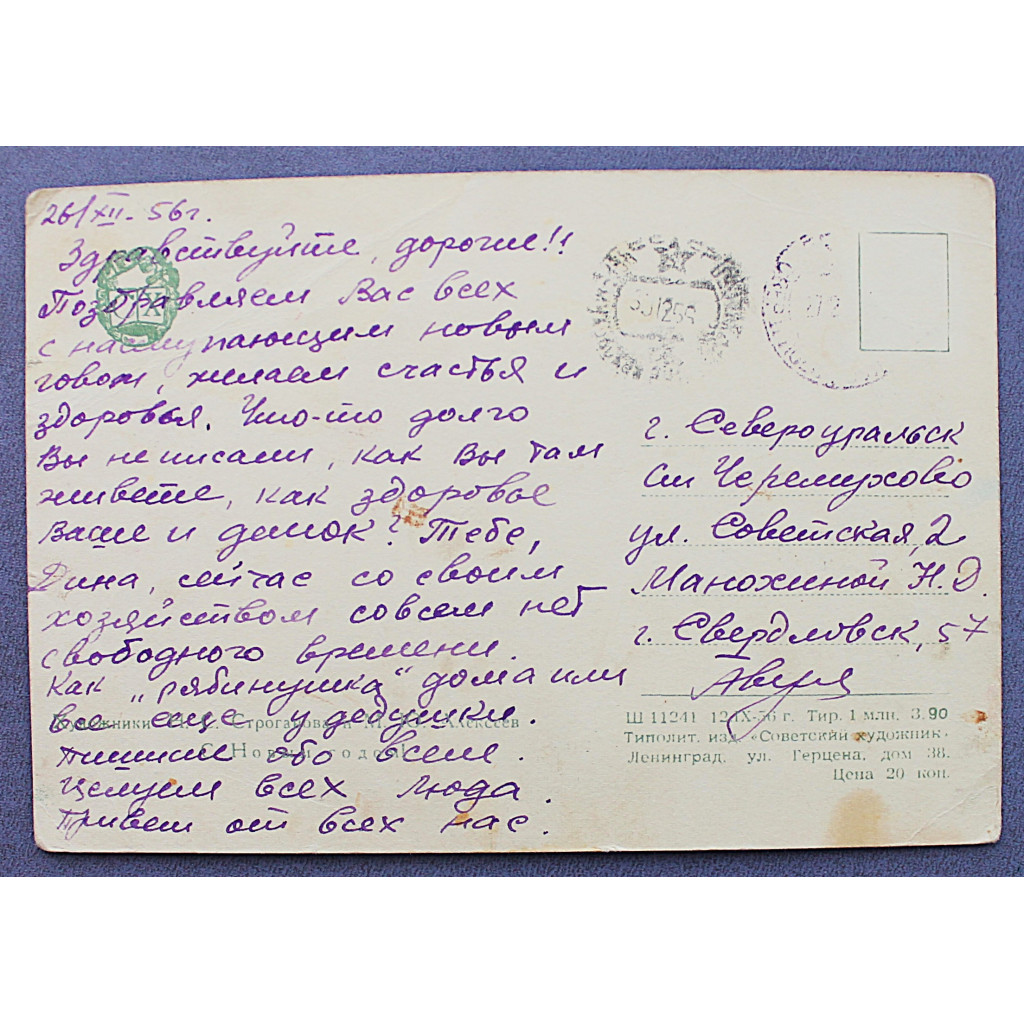 26/XII-56г.
Здравствуйте, дорогие!!
Поздравляем Вас всех
с наступающим новым
годом, желаем счастья и
здоровья. Что-то долго
Вы не писали, как Вы там
живете, как здоровье
Ваше и деток? Тебе,
Дина, сейчас со своим
хозяйством совсем нет
свободного времени.
Как "рябинушка" дома или
все еще у дедушки.
Пишите обо всем.
Целуем всех Люда.
Привет от всех нас.
Художники Строганова и М. Алексеев
С Новым годом!
г. Североуральск
сп Черемухово
ул. Советская, 2
Манохиной Н.Д.
г. Свердловск, 57
Ш 11241 12/IX-56 г. Тир. 1 млн. З. 90
Типолит. изд. «Советский художник»
Ленинград, ул. Герцена, дом 38.
Цена 20 коп.